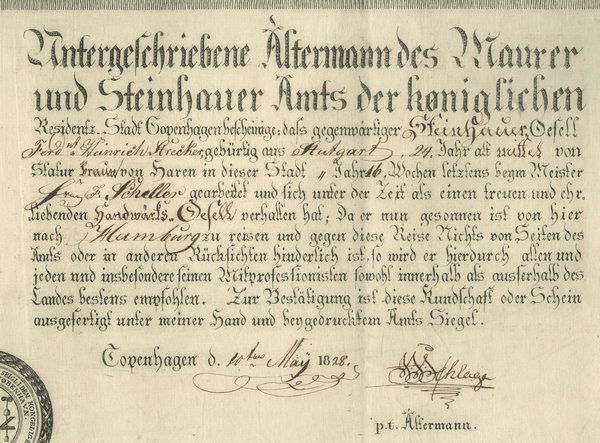 Untergeschriebene Ältermann des Maurer
und Steinhauer Amts der königlichen
Residentz-Stadt Copenhagen bescheinige: daſs gegenwärtiger Steinhauer, Gesell
Heinrich gebürtig aus Stutgart, 24, Jahr alt mittel von
Statur braun von Haren in dieser Stadt " Jahr 16, Wochen letztens beym Meister
Scheller gearbeitet und sich unter der Zeit als einen treuen und ehr,
liebenden Handwarks-Gesell verhalten hat; Da er nun gesonnen ist von hier
nach Hamburg zu reisen und gegen diese Reise Nichts von Seiten des
Amts oder in anderen Rücksichten hinderlich ist, so wird er hierdurch allen und
jeden und insbesondere seinen Mitprofessionisten sowohl innerhalb als ausserhalb des
Landes bestens empfohlen. Zur Bestätigung ist diese Kundschaft oder Schein
ausgefertigt unter meiner Hand und beygedrucktem Amts Siegel.
Copenhagen d. 10ten May 1828.
Schlage
p.t. Ältermann.